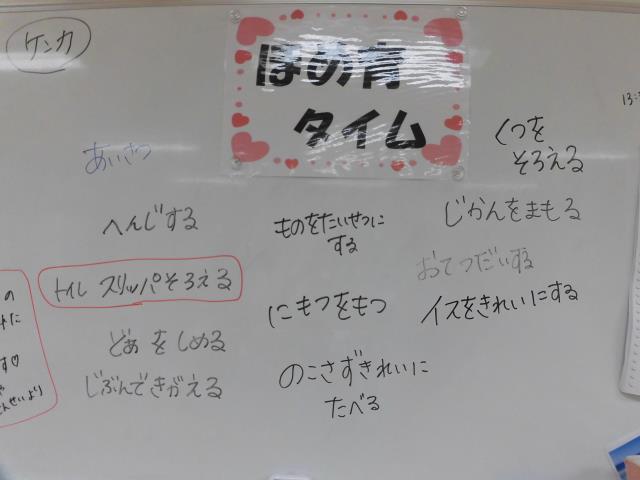 ケンカ
ほめ育
タイム
13:
あいさつ
へんじする
トイレ スリッパそろえる
どあをしめる
じぶんできがえる
ものをたいせつに
する
にもつをもつ
のこさずきれいに
たべる
くつを
そろえる
じかんをまもる
おてつだいする
イスをきれいにする
の
に
す♡
せんせいより